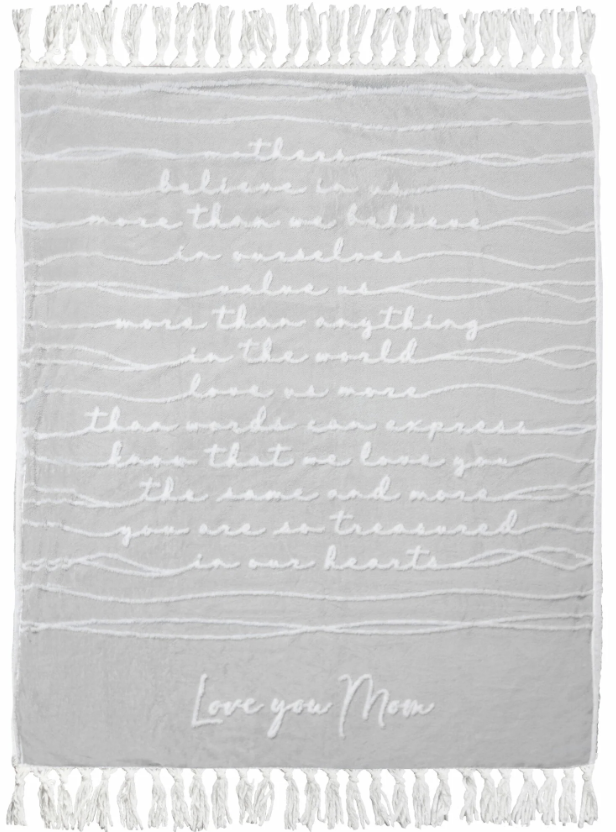 believe in us
more than we believe
in ourselves
value us
more than anything
in the world
love us more
than words can express
know that we love you
the same and more
you are so treasured
in our hearts
Love you Mom